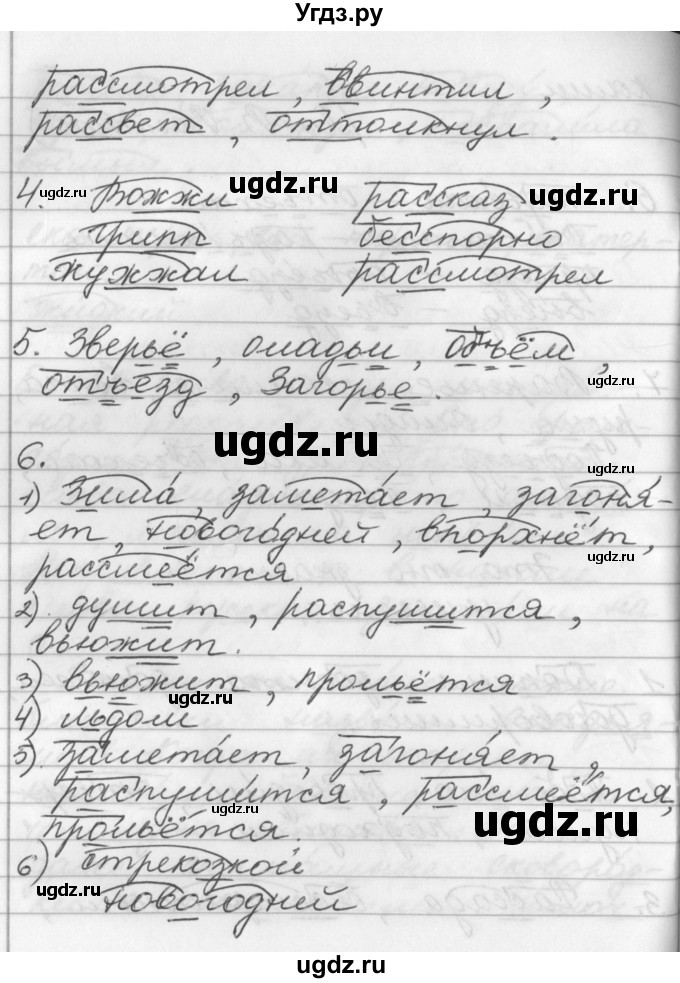 Угдз.ру
рассмотрел, ввинтил,
рассвет, оттолкнул.
ugdz.ru ugdz.ru ugdz.ru
4. Вожжи рассказ
грипп бесспорно
жужжал рассмотрел
5. Зверьё, оладьи, объём,
ugdz.ru
отъезд, Загорье.
ugdz.ru
6.
ugdz.ru
1) Зима́, замета́ет, загоня́-
ет, нового́дней, впорхнёт,
ugdz.ru
рассмеётся
2). душит, распушится,
вьюжит.
3) вьюжит, прольётся
ugdz.ru
4) льдом
5). замета́ет, загоня́ет,
распуши́тся, рассмеётся,
ugdz.ru ugdz.ru
прольётся.
6) стрекозкой
ugdz.ru
новогодней
ugdz.ru